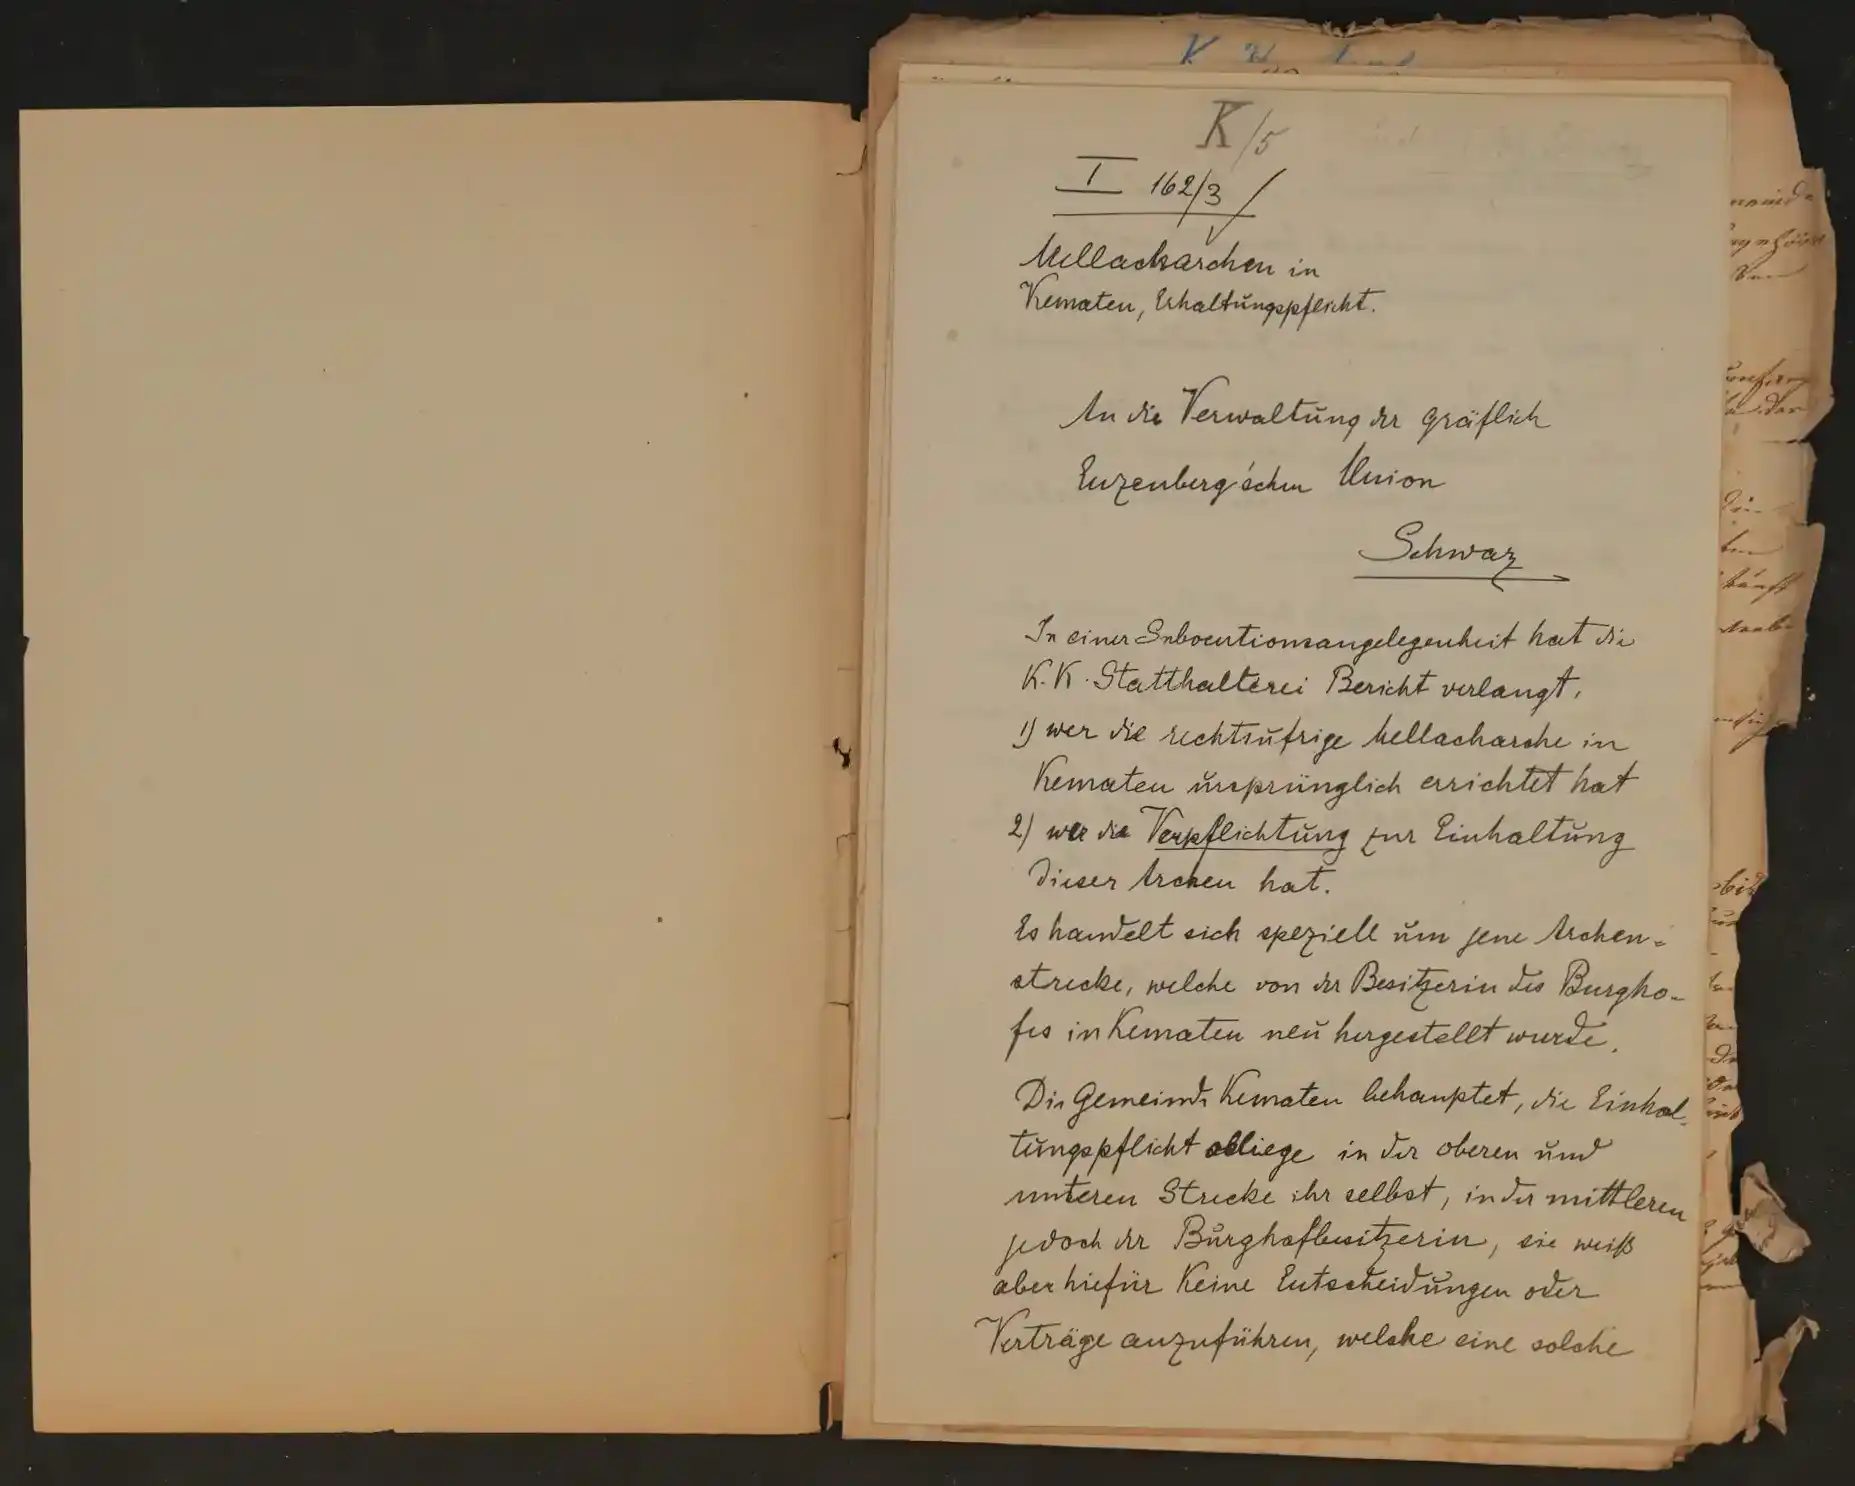 K/5
I 162/3
Mellacharchen in
Kematen, Erhaltungspflicht.
An die Verwaltung der gräflich
Enzenberg'schen Union
Schwaz
In einer Subventionsangelegenheit hat die
K. K. Statthalterei Bericht verlangt,
1) wer die rechtsufrige Mellacharche in
Kematen ursprünglich errichtet hat
2) wer die Verpflichtung zur Einhaltung
dieser Archen hat.
Es handelt sich speziell um jene Archen-
strecke, welche von der Besitzerin des Burgho-
fes in Kematen neu hergestellt wurde.
Die Gemeinde Kematen behauptet, die Einhal-
tungspflicht obliege in der oberen und
unteren Strecke ihr selbst, in der mittleren
jedoch der Burghofbesitzerin, sie weiß
aber hiefür keine Entscheidungen oder
Verträge anzuführen, welche eine solche